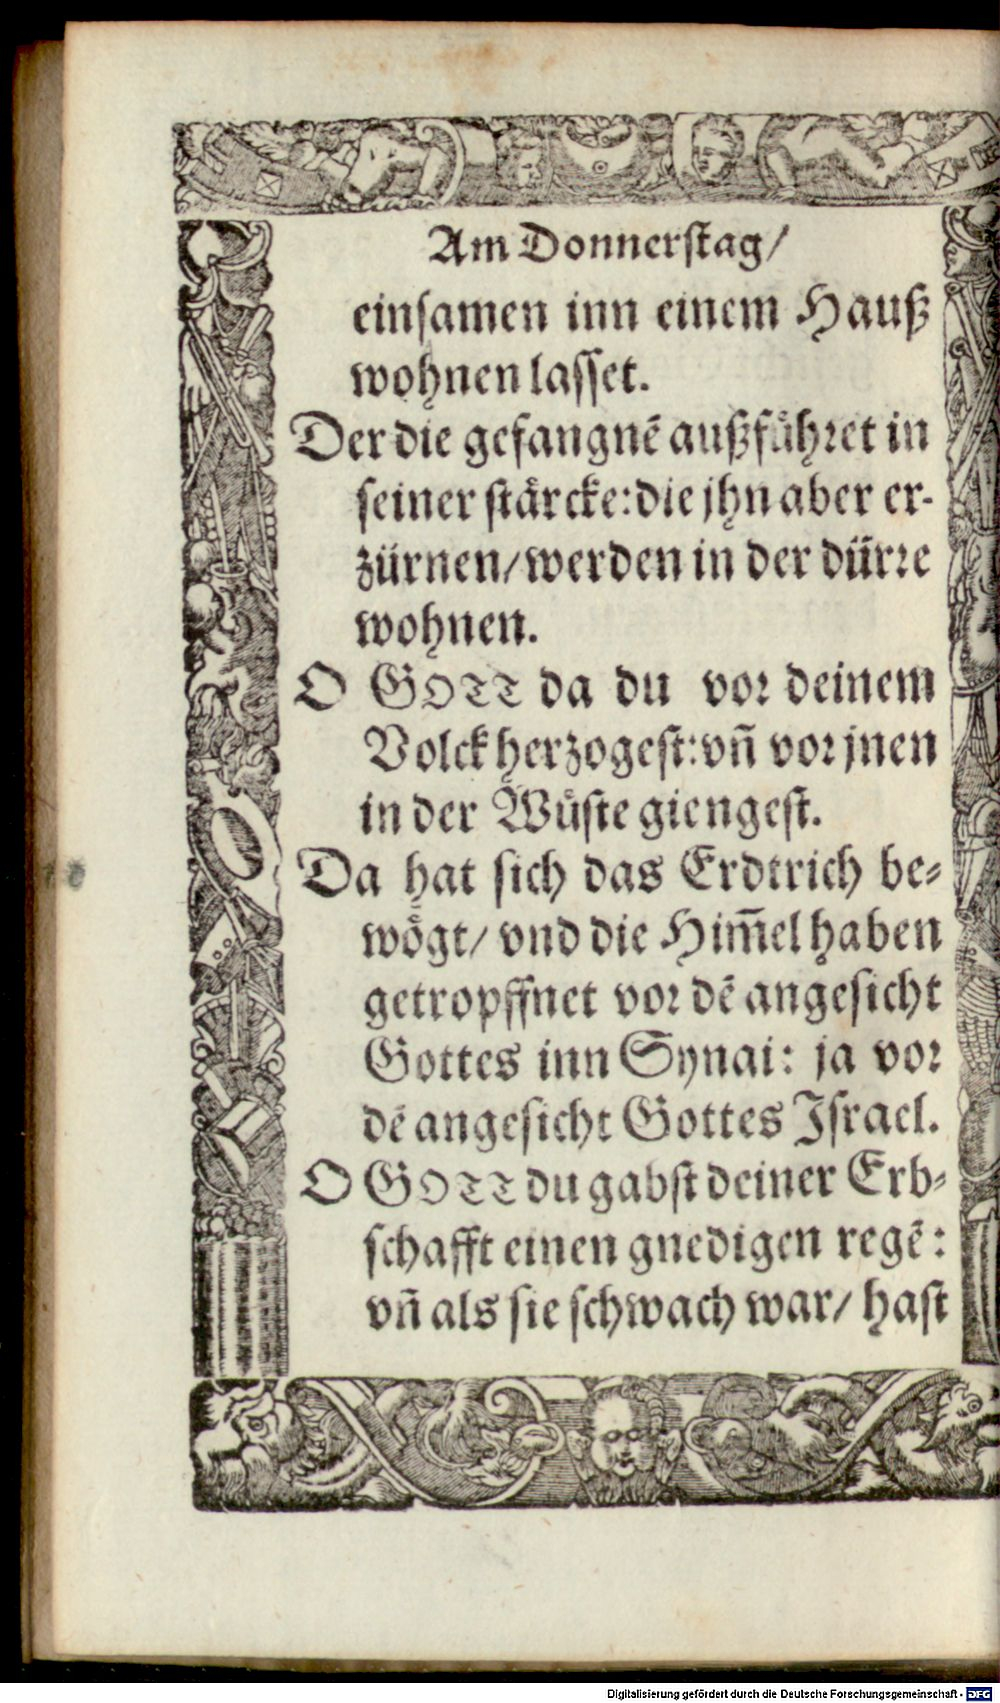 Am Donnerstag/
einsamen inn einem Hauß
wohnen lasset.
Der die gefangnē außfu͏̈hret in
seiner stärcke: die jhn aber er-
zürnen/ werden in der dürre
wohnen.
O GOTT da du vor deinem
Volck herzogest: vn̄ vor jnen
in der Wüste giengest.
Da hat sich das Erdtrich be-
wögt/ vnd die Him̄el haben
getropffnet vor dē angesicht
Gottes inn Synai: ja vor
dē angesicht Gottes Israel.
O GOTT du gabst deiner Erb-
schafft einen gnedigen regē:
vn̄ als sie schwach war/ hast
Digitalisierung gefördert durch die Deutsche Forschungsgemeinschaft - DFG